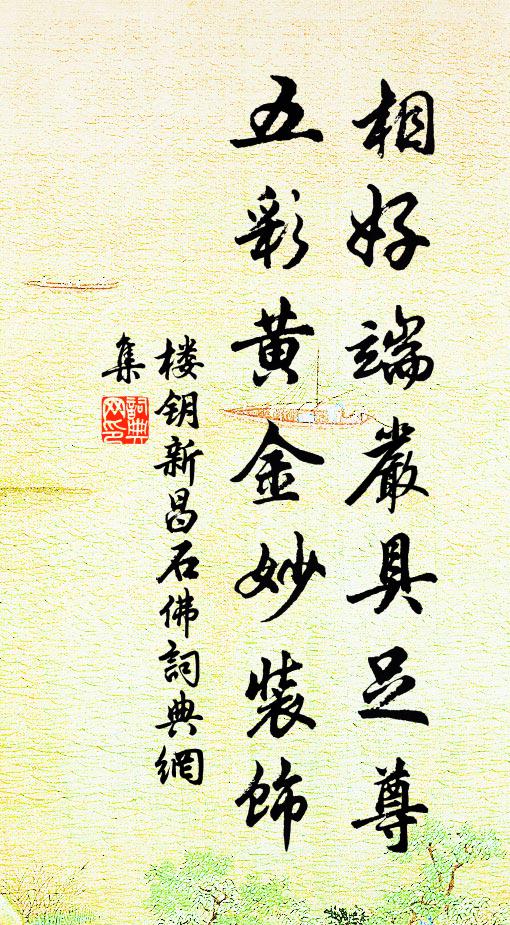 相好端嚴具足尊
五彩黄金妙裝飾
楼钥新昌石佛詞典網
集
詞典
网印